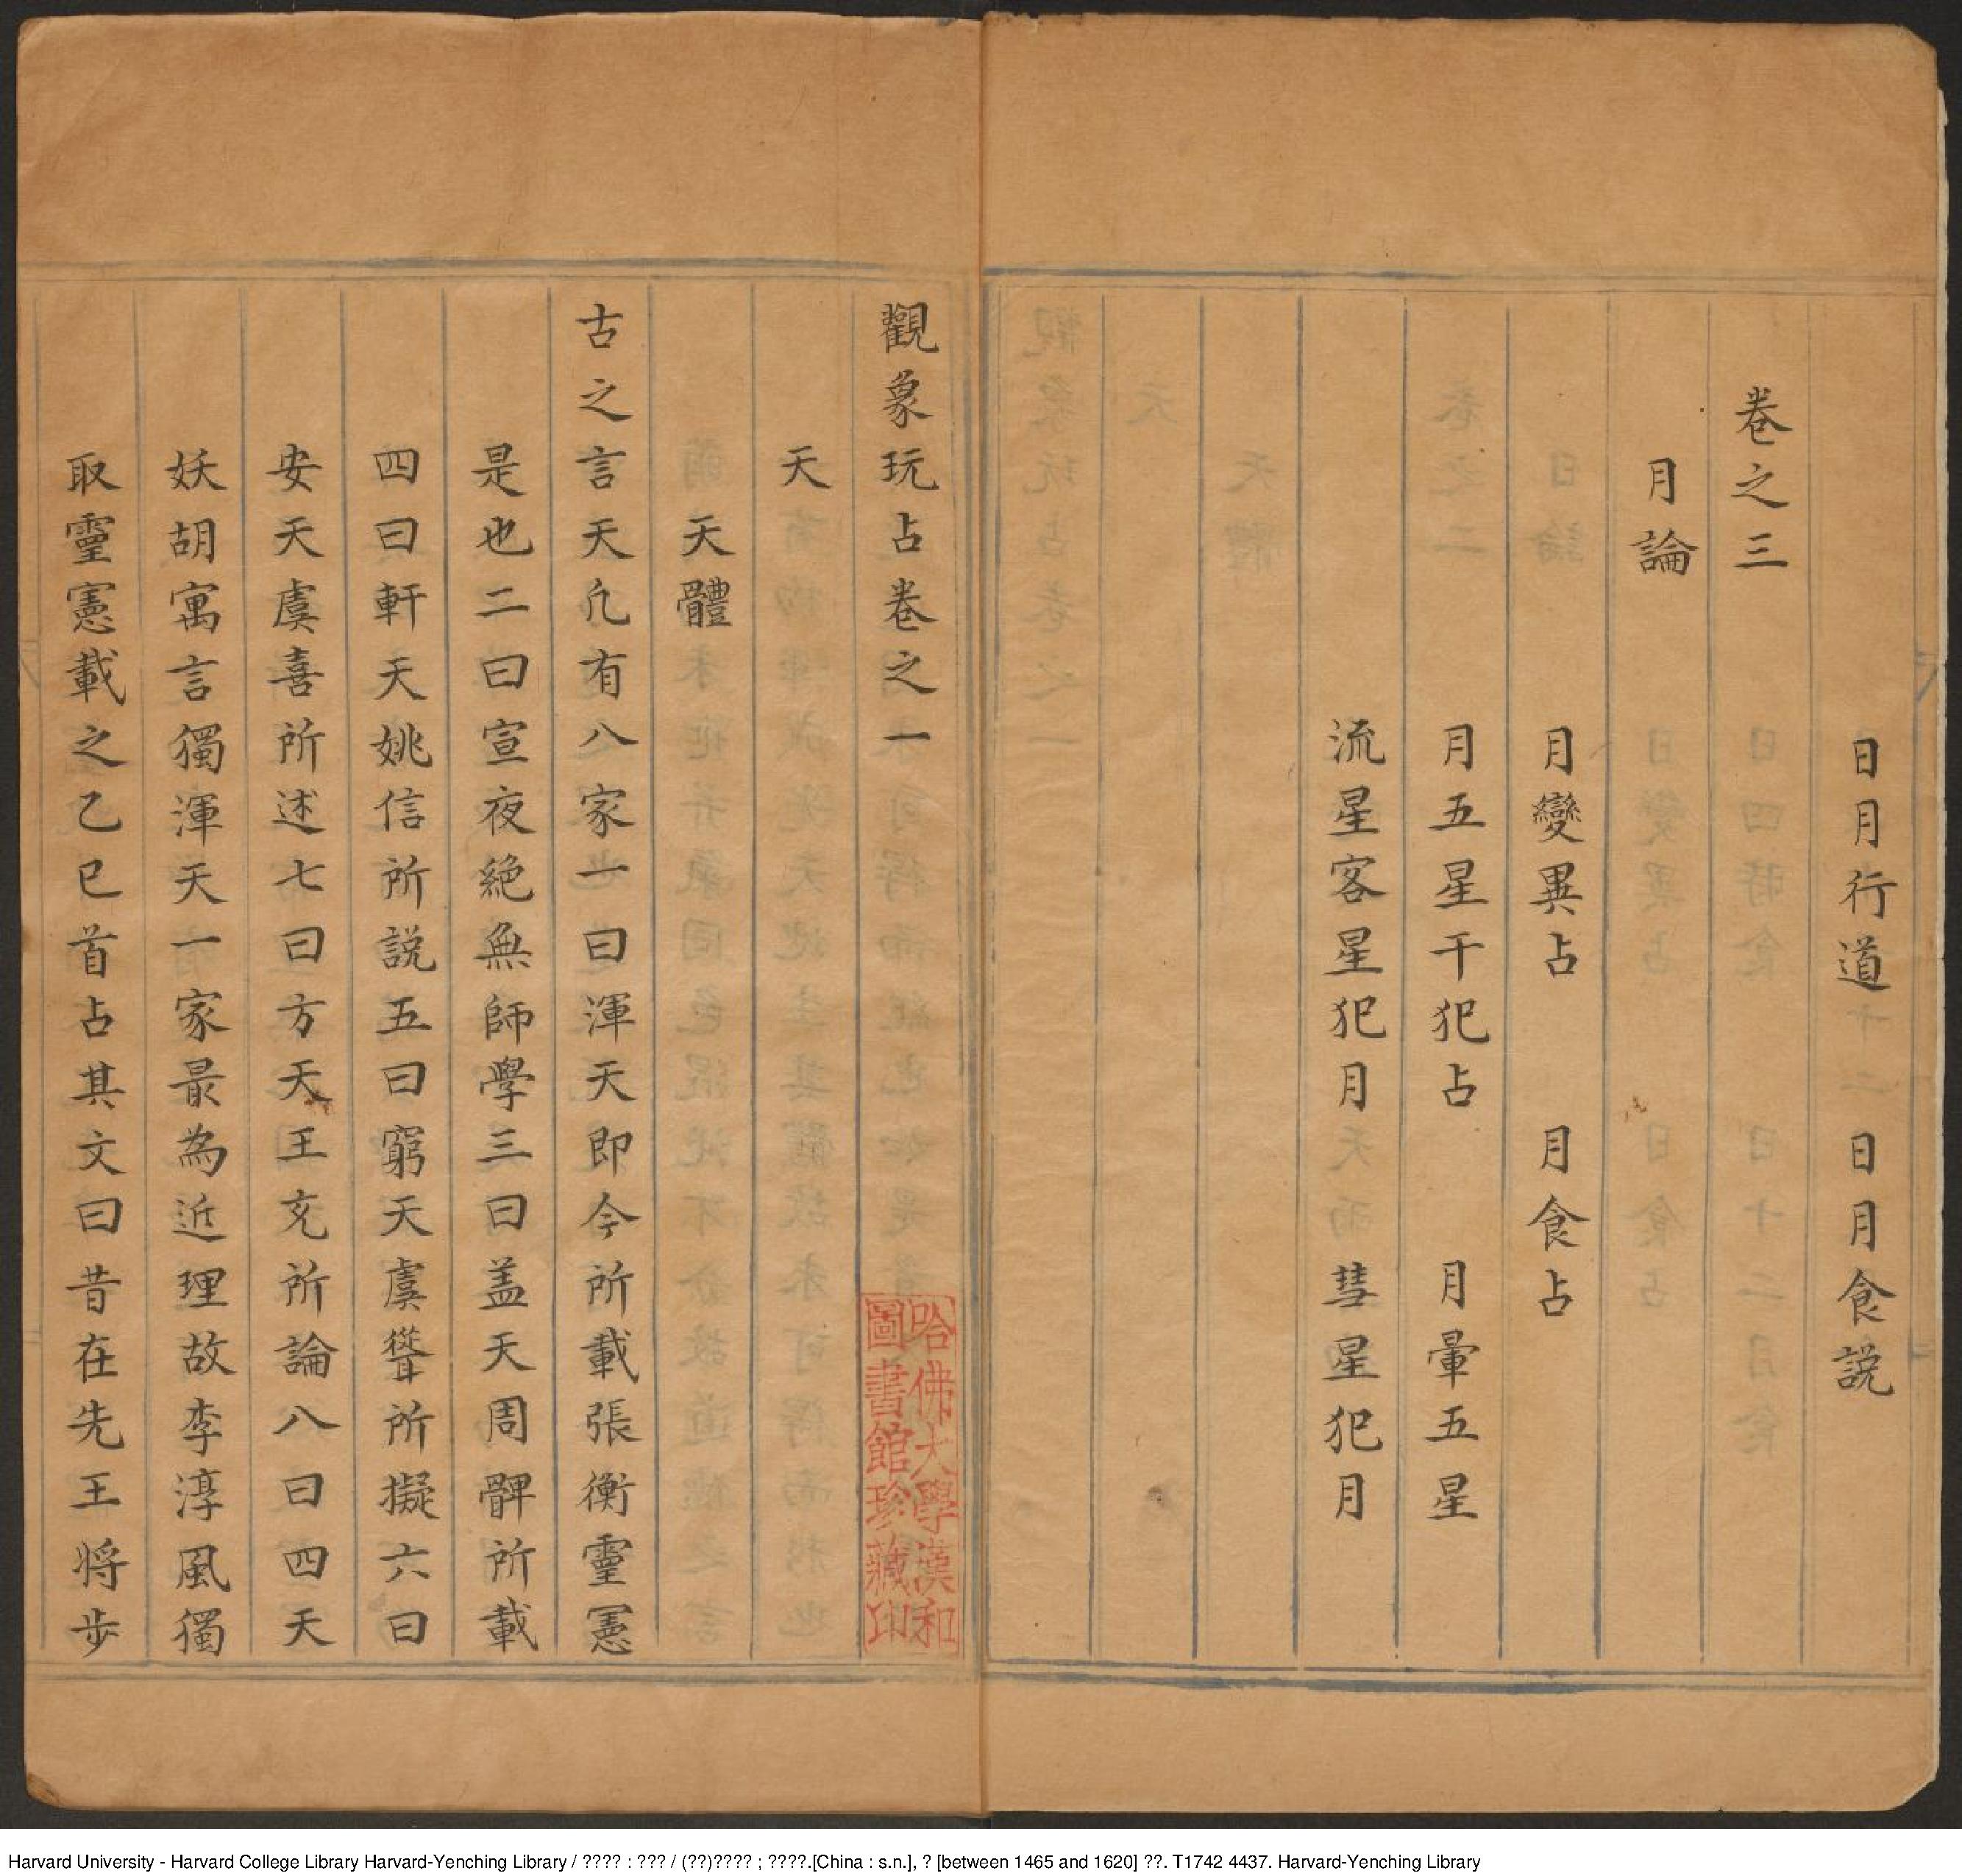 日月行道 日月食説
卷之三
月論
月變異占 月食占
月五星干犯占 月暈五星
流星客星犯月 彗星犯月
觀象玩占卷之一
哈佛大學漢和
圖書館珍藏印
天
天體
古之言天凢有八家一曰渾天即今所載張衡靈憲
是也二曰宣夜絶無師學三曰盖天周髀所載
四曰軒天姚信所説五曰窮天虞聳所擬六曰
安天虞喜所述七曰方天王充所論八曰四天
妖胡寓言獨渾天一家最為近理故李淳風獨
取靈憲載之乙巳首占其文曰昔在先王将步
Harvard University - Harvard College Library Harvard-Yenching Library / ???? : ??? / (??)???? ; ????.[China : s.n.], ? [between 1465 and 1620] ??. T1742 4437. Harvard-Yenching Library